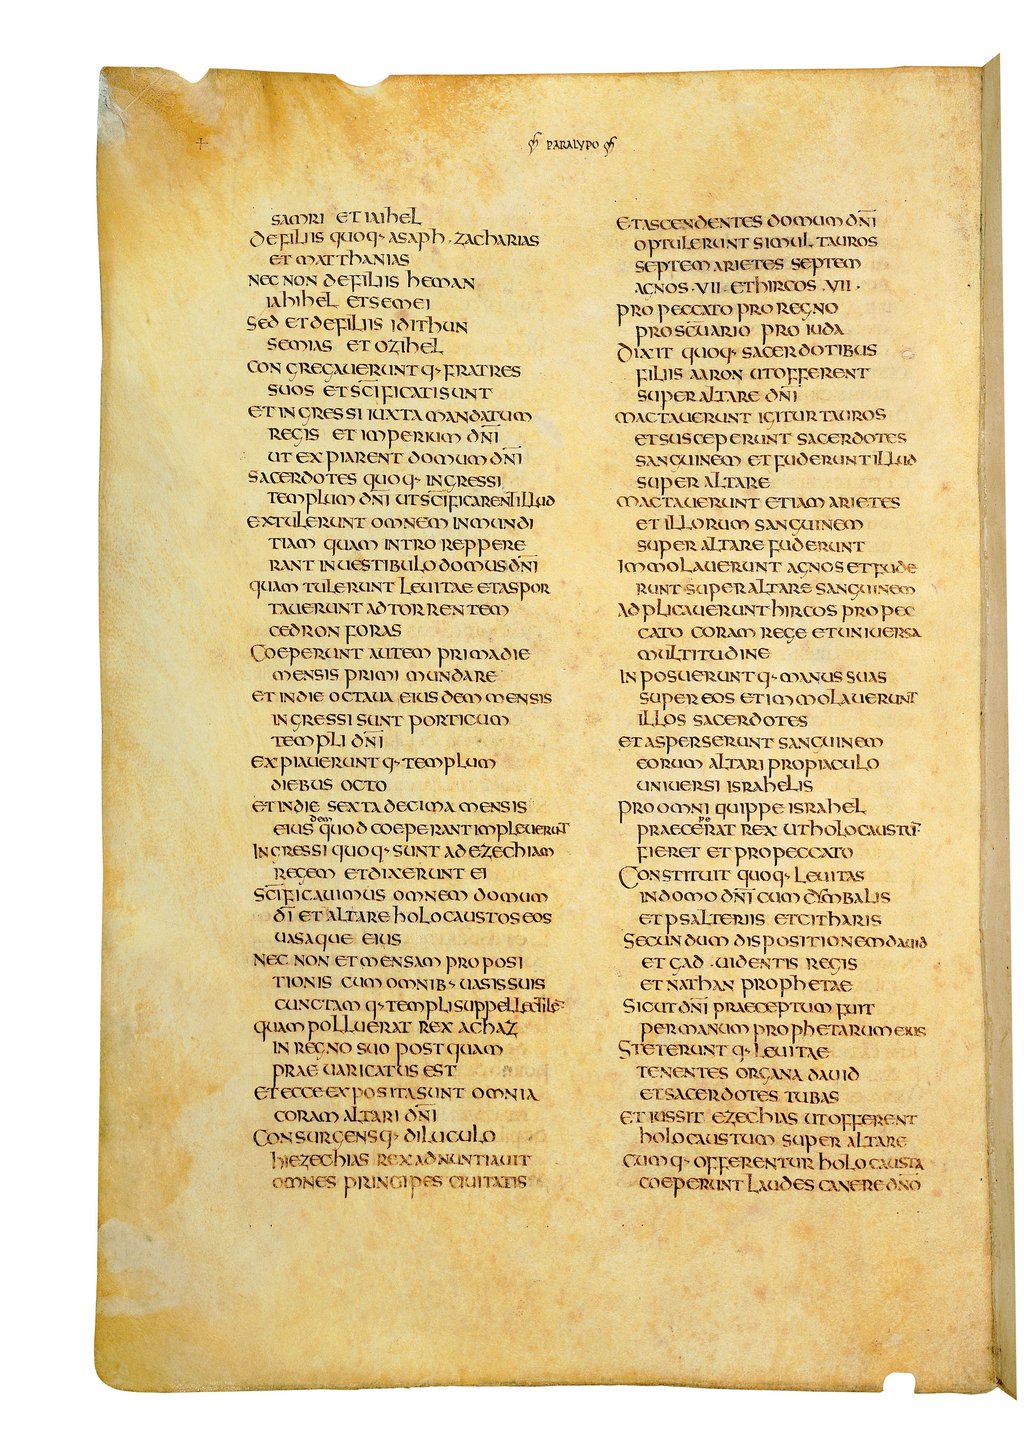 PARALYPO
SAMRI ET IAIHEL
DE FILIIS QUOQ· ASAPH · ZACHARIAS
ET MATTHANIAS
NEC NON DE FILIIS HEMAN
IAHIHEL ET SEMEI
SED ET DE FILIIS IDITHUN
SEMIAS ET OZIHEL
CONGREGAUERUNTQ· FRATRES
SUOS ET SC̅IFICATI SUNT
ET INGRESSI IUXTA MANDATUM
REGIS ET IMPERIUM DN̅I
UT EXPIARENT DOMUM DN̅I
SACERDOTES QUOQ· INGRESSI
TEMPLUM DN̅I UT SC̅IFICARENT ILLUD
EXTULERUNT OMNEM INMUNDI
TIAM QUAM INTRO REPPERE
RANT IN UESTIBULO DOMUS DN̅I
QUAM TULERUNT LEUITAE ET ASPOR
TAUERUNT AD TORRENTEM
CEDRON FORAS
COEPERUNT AUTEM PRIMA DIE
MENSIS PRIMI MUNDARE
ET IN DIE OCTAUA EIUSDEM MENSIS
INGRESSI SUNT PORTICUM
TEMPLI DN̅I
EXPIAUERUNTQ· TEMPLUM
DIEBUS OCTO
ET IN DIE SEXTA DECIMA MENSIS
EIUSDEM QUOD COEPERANT IMPLEUERUNT
INGRESSI QUOQ· SUNT AD EZECHIAM
REGEM ET DIXERUNT EI
SC̅IFICAUIMUS OMNEM DOMUM
DI̅ ET ALTARE HOLOCAUSTOS EOS
UASAQUE EIUS
NEC NON ET MENSAM PROPOSI
TIONIS CUM OMNIB· UASIS SUIS
CUNCTAMQ· TEMPLI SUPPELLECTILE·
QUAM POLLUERAT REX ACHAZ
IN REGNO SUO POSTQUAM
PRAEUARICATUS EST
ET ECCE EXPOSITA SUNT OMNIA
CORAM ALTARI DN̅I
CONSURGENSQ· DILUCULO
HIEZECHIAS REX ADNUNTIAUIT
OMNES PRINCIPES CIUITATIS
ET ASCENDENTES DOMUM DN̅I
OPTULERUNT SIMUL TAUROS
SEPTEM ARIETES SEPTEM
AGNOS ·VII· ET HIRCOS ·VII·
PRO PECCATO PRO REGNO
PRO SC̅UARIO PRO IUDA
DIXIT QUOQ· SACERDOTIBUS
FILIIS AARON UT OFFERENT
SUPER ALTARE DN̅I
MACTAUERUNT IGITUR TAUROS
ET SUSCEPERUNT SACERDOTES
SANGUINEM ET FUDERUNT ILLUD
SUPER ALTARE
MACTAUERUNT ETIAM ARIETES
ET ILLORUM SANGUINEM
SUPER ALTARE FUDERUNT
IMMOLAUERUNT AGNOS ET FUDE
RUNT SUPER ALTARE SANGUINEM
ADPLICAUERUNT HIRCOS PRO PEC
CATO CORAM REGE ET UNIUERSA
MULTITUDINE
INPOSUERUNTQ· MANUS SUAS
SUPER EOS ET IMMOLAUERUNT
ILLOS SACERDOTES
ET ASPERSERUNT SANGUINEM
EORUM ALTARI PRO PIACULO
UNIUERSI ISRAHELIS
PRO OMNI QUIPPE ISRAHEL
PRAECEPERAT REX UT HOLOCAUSTU̅
FIERET ET PRO PECCATO
CONSTITUIT QUOQ· LEUITAS
IN DOMO DN̅I CUM CYMBALIS
ET PSALTERIIS ET CITHARIS
SECUNDUM DISPOSITIONEM DAUID
ET GAD · UIDENTIS REGIS
ET NATHAN PROPHETAE
SICUT DN̅I PRAECEPTUM FUIT
PER MANUM PROPHETARUM EIUS
STETERUNTQ· LEUITAE
TENENTES ORGANA DAUID
ET SACERDOTES TUBAS
ET IUSSIT EZECHIAS UT OFFERENT
HOLOCAUSTUM SUPER ALTARE
CUMQ· OFFERENTUR HOLOCAUSTA
COEPERUNT LAUDES CANERE DN̅O